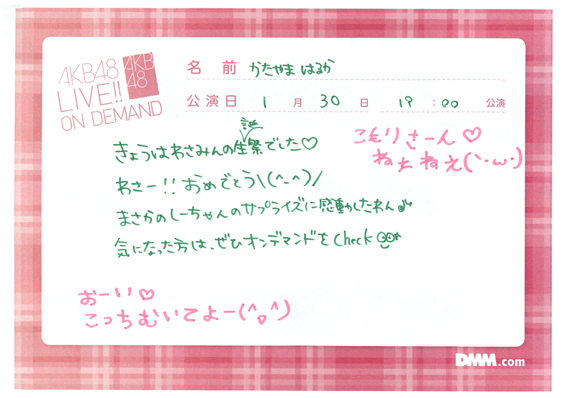 AKB48
LIVE!!
ON DEMAND
AKB
48
名 前 かたやま はるか
公演日 1 月 30 日 19:00 公演
きょうはわさみんの生祭でした♡
こもりさーん♡
ねえねえ(`･ω･)
わさー!!おめでとう\(^-^)/
まさかのしーちゃんのサプライズに感動したわん♪
気になった方は、ぜひオンデマンドをcheck
おーい♡
こっちむいてよー(^o^)
DMM.com